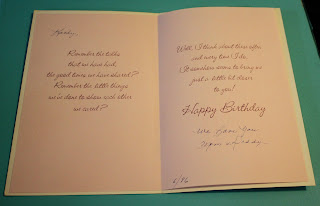 Remember the talks
that we have had,
the good times we have shared?
Remember the little things
we've done to show each other
we cared?
Well, I think about them often
and every time I do,
It somehow seems to bring me
just a little bit closer
to you!
Happy Birthday
We Love You